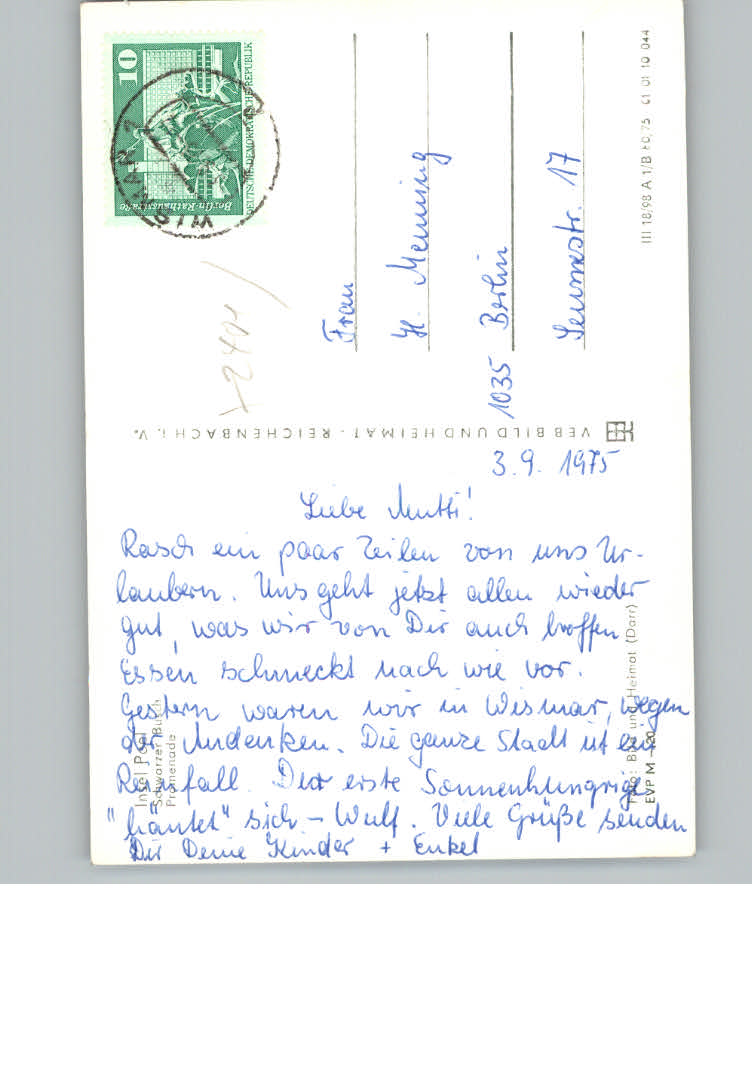 3.9. 1975
Liebe Mutti!
Rasch ein paar Zeilen von uns Ur-
laubern. Uns geht jetzt allen wieder
gut, was wir von Dir auch hoffen
Essen schmeckt nach wie vor.
Gestern waren wir in Wismar, wegen
der Andenken. Die ganze Stadt ist ein
Reinfall. Der erste Sonnenhungrige
"häutet" sich – Wulf. Viele Grüße senden
Dir Deine Kinder + Enkel
Frau
H. Menning
1035 Berlin
Seumestr. 17
Insel Poel
Schwarzer Busch
Promenade
Foto: Bild und Heimat (Darr)
EVP M -,20
VEB BILD UND HEIMAT · REICHENBACH i. V.
III 18/98 A 1/B 60/75 01 01 10 044
10
DEUTSCHE DEMOKRATISCHE REPUBLIK
Berlin-Rathausstraße
WISMAR